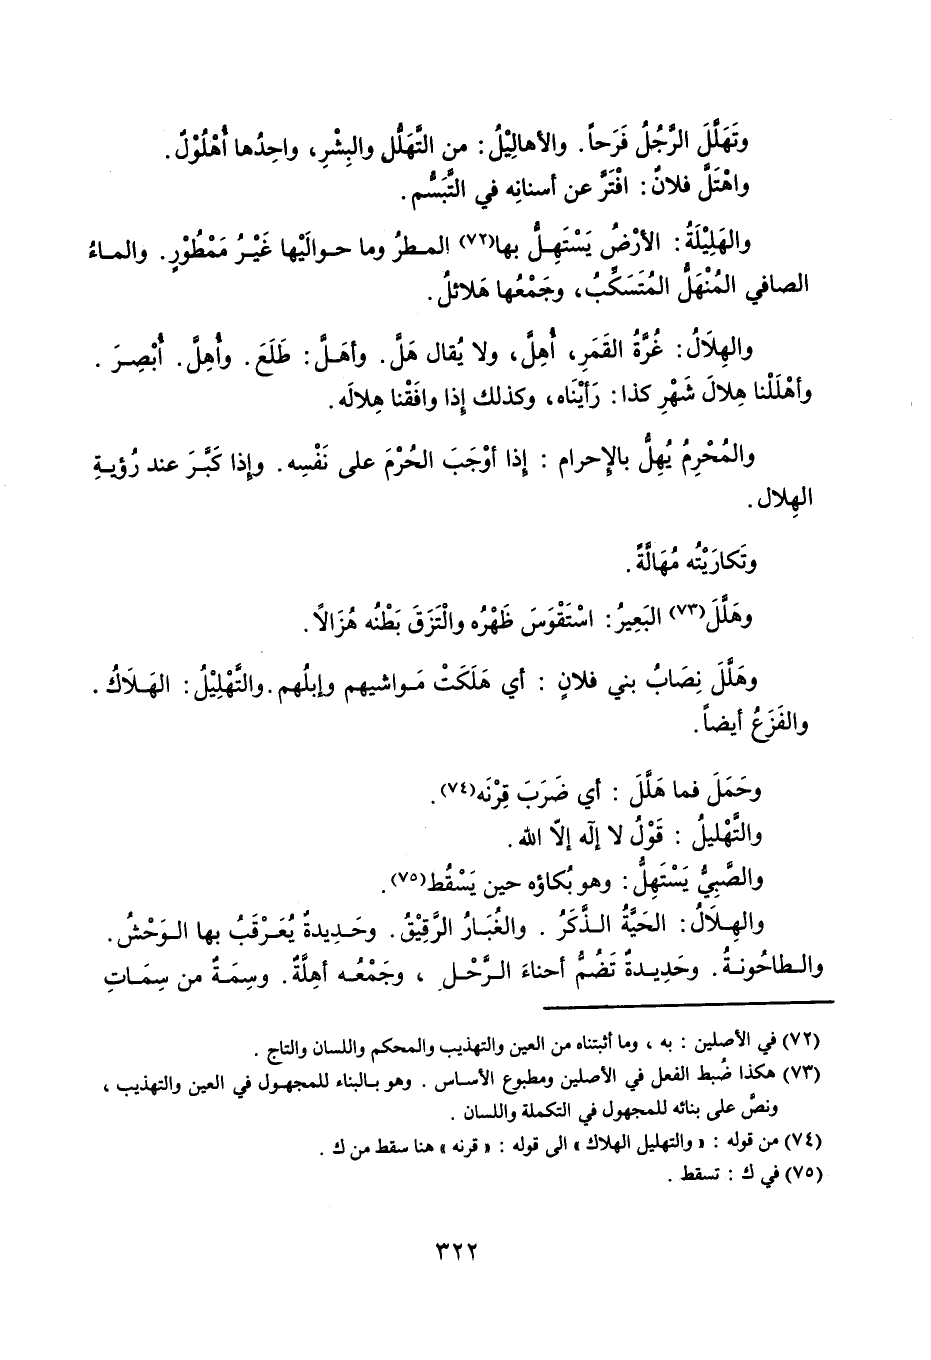 وتَهَلَّلَ الرَّجُلُ فَرَحاً. والأهالِيْلُ: من التَّهَلُّل والبِشْرِ، واحِدُها أُهْلُوْلٌ.
واهْتَلَّ فلانٌ: افْتَرَّ عن أسنانِه في التَّبَسُّم.
والهَلِيْلَةُ: الأرْضُ يَسْتَهِلُّ بها(٧٢) المـطرُ وما حـوالَيْها غَيْـرُ مَمْطُوْرٍ. والمـاءُ
الصافي المُنْهَلُّ المُتَسَكِّبُ، وجَمْعُها هَلائلُ.
والهِلَالُ: غُرَّةُ القَمَرِ، أُهِلَّ، ولا يُقال هَلَّ. وأهَـلَّ: طَلَعَ. وأُهِلَّ. أُبْصِـرَ .
وأهْلَلْنا هِلالَ شَهْرِ كذا: رَأيْنَاه، وكذلك إذا وافَقْنا هِلالَه.
والمُحْرِمُ يُهِلُّ بالإحرام : إذا أوْجَبَ الحُرْمَ على نَفْسِه. وإذا كَبَّـرَ عند رُؤيـةِ
الهِلال.
وتَكارَيْتُه مُهَالَّةً.
وهَلَّلَ(٧٣) البَعِيرُ: اسْتَقْوَسَ ظَهْرُه والْتَزَقَ بَطْنُه هُزَالاً.
وهَلَّلَ نِصَابُ بني فلانٍ : أي هَلَكَتْ مَـواشيهم وإبلُهم.والتَّهْلِيْلُ: الهَـلَاكُ.
والفَزَعُ أيضاً.
وحَمَلَ فما هَلَّلَ : أي ضَرَبَ قِرْنَه(٧٤).
والتَّهْليلُ : قَوْلُ لا إلَه إلاّ الله.
والصَّبِيُّ يَسْتَهِلُّ: وهو بُكاؤه حين يَسْقُط(٧٥).
والهِـلَالُ: الحَيَّةُ الـذَّكَرُ . والغُبَـارُ الرَّقِيْقُ. وحَـدِيدةٌ يُعَـرْقَبُ بها الـوَحْشُ.
والـطاحُونـةُ. وحَدِيـدةٌ تَضُمُّ أحناءَ الـرَّحْـلِ ، وجَمْعُـه أهِلَّةٌ. وسِمَـةٌ من سِمَـاتِ
(٧٢) في الأصلين : به ، وما أثبتناه من العين والتهذيب والمحكم واللسان والتاج .
(٧٣) هكذا ضُبط الفعل في الأصلين ومطبوع الأساس . وهو بـالبناء للمجهـول في العين والتهذيب ،
ونصَّ على بنائه للمجهول في التكملة واللسان .
(٧٤) من قوله : « والتهليل الهلاك » الى قوله : « قرنه » هنا سقط من ك .
(٧٥) في ك : تسقط .
٣٢٢